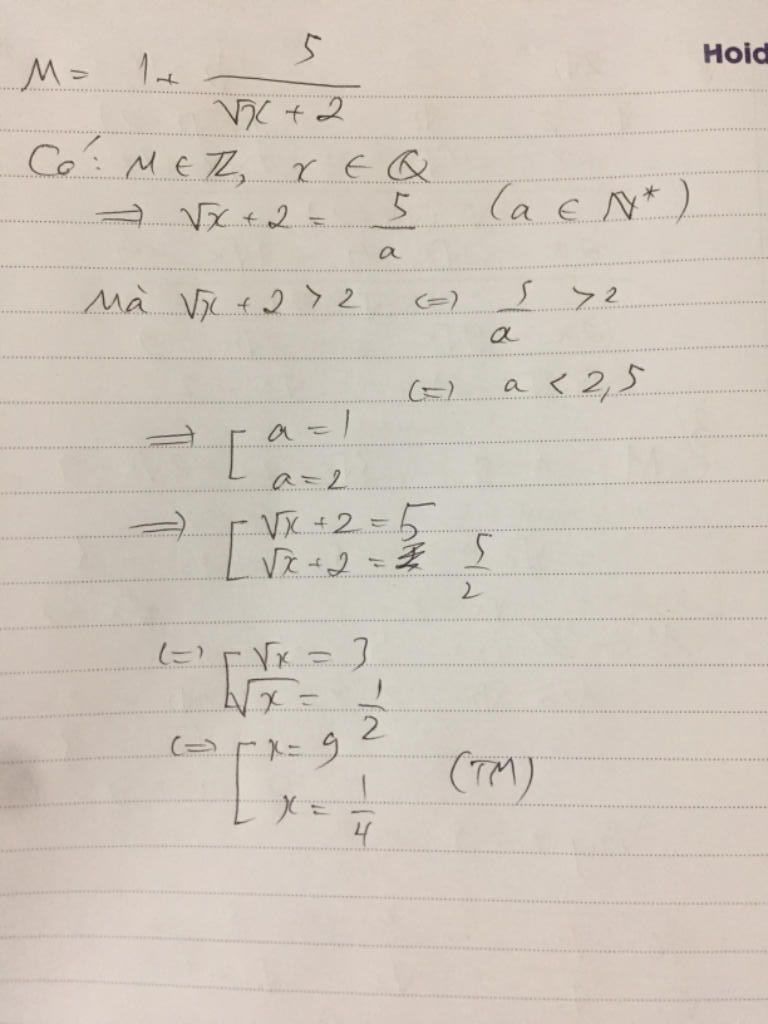 Hoid
M = 1 + 5/(√x + 2)
Có: M ∈ ℤ, x ∈ ℚ
⇒ √x + 2 = 5/a (a ∈ ℕ*)
Mà √x + 2 > 2 (=) 5/a > 2
(=) a < 2,5
⇒ [ a = 1
a = 2
⇒ [ √x + 2 = 5
√x + 2 = 5/2
(=) [ √x = 3
√x = 1/2
(=) [ x = 9
x = 1/4 (TM)